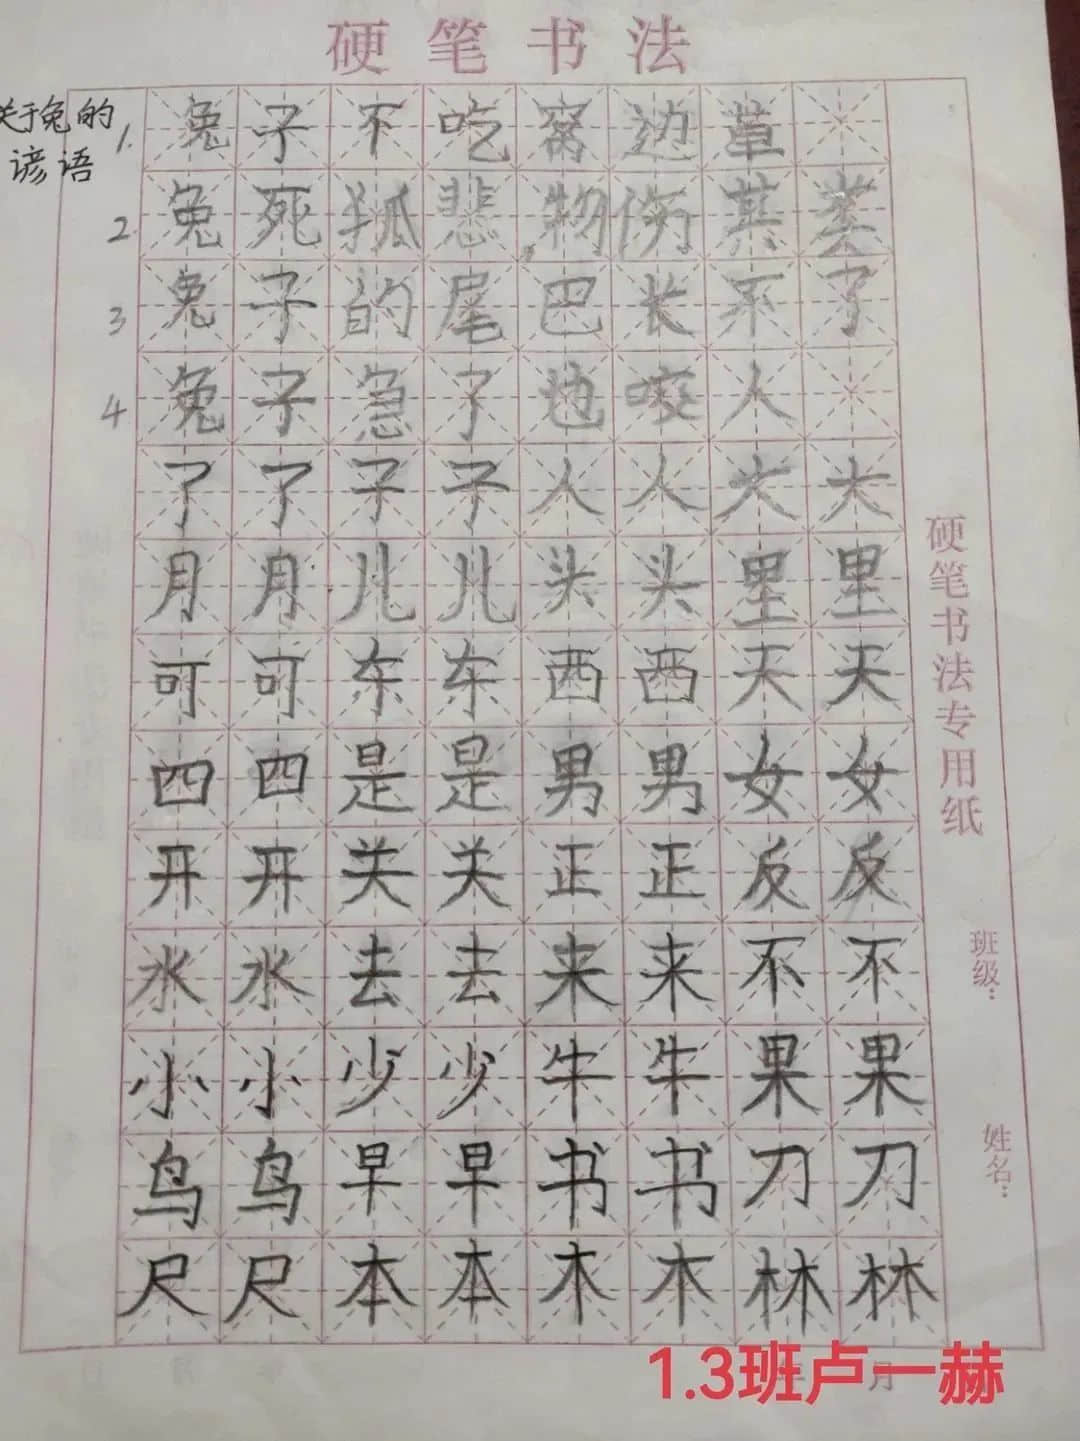 硬笔书法
关于兔的
谚语
1. 兔子不吃窝边草
2. 兔死狐悲,物伤其类
3 兔子的尾巴长不了
4 兔子急了也咬人
了了子子人人大大
月月儿儿头头里里
可可东东西西天天
四四是是男男女女
开开关关正正反反
水水去去来来不不
小小少少牛牛果果
鸟鸟早早书书刀刀
尺尺本本木木林林
硬笔书法专用纸
班级:
姓名:
年 月
1.3班卢一赫